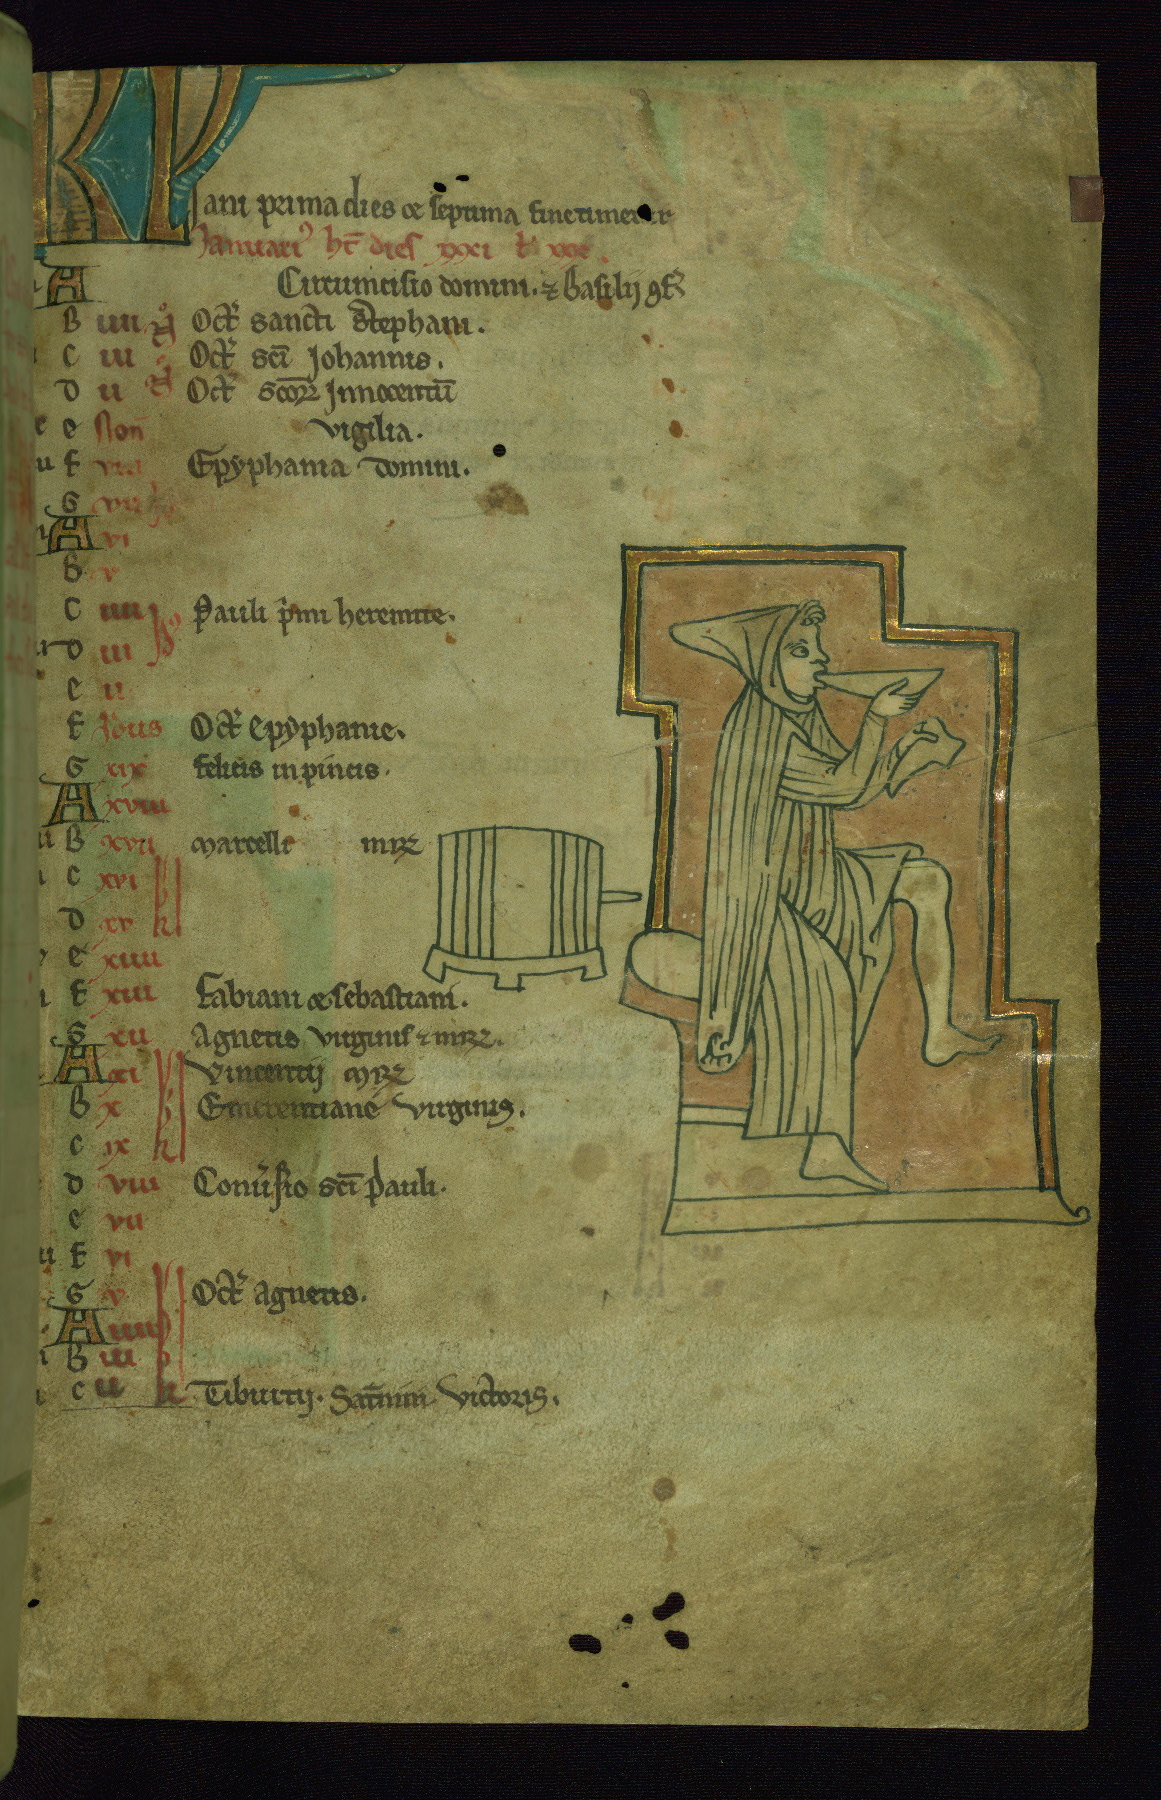 KL
Jani prima dies & septima fine timetur
Januari⁹ ht̄ dies xxxi l̄ xxx.
A Circumcisio domini. & Basilij ꝯf̄.
B iiii Oct̄ sancti Stephani.
C iii Oct̄ sc̄i Johannis.
D ii Oct̄ sc̄oꝝ Innocentū
e Non̄ vigilia.
F viii Epyphania domini.
G vii
A vi
B v
C iiii Pauli p̄mi heremite.
D iii
e ii
F Idus Oct̄ Epyphanie.
G xix felicis in pincis.
A xviii
B xvii Marcelli mr̄
C xvi
D xv
e xiiii
F xiii Fabiani & sebastiani.
G xii Agnetis virginis & mr̄.
A xi Vincentij mr̄
B x Emerentiane virginis.
C ix
D viii Conūsio sc̄i Pauli.
e vii
F vi
G v Oct̄ Agnetis.
A iiii
B iii
C ii Tiburtij. Sat̄nini Victoris.